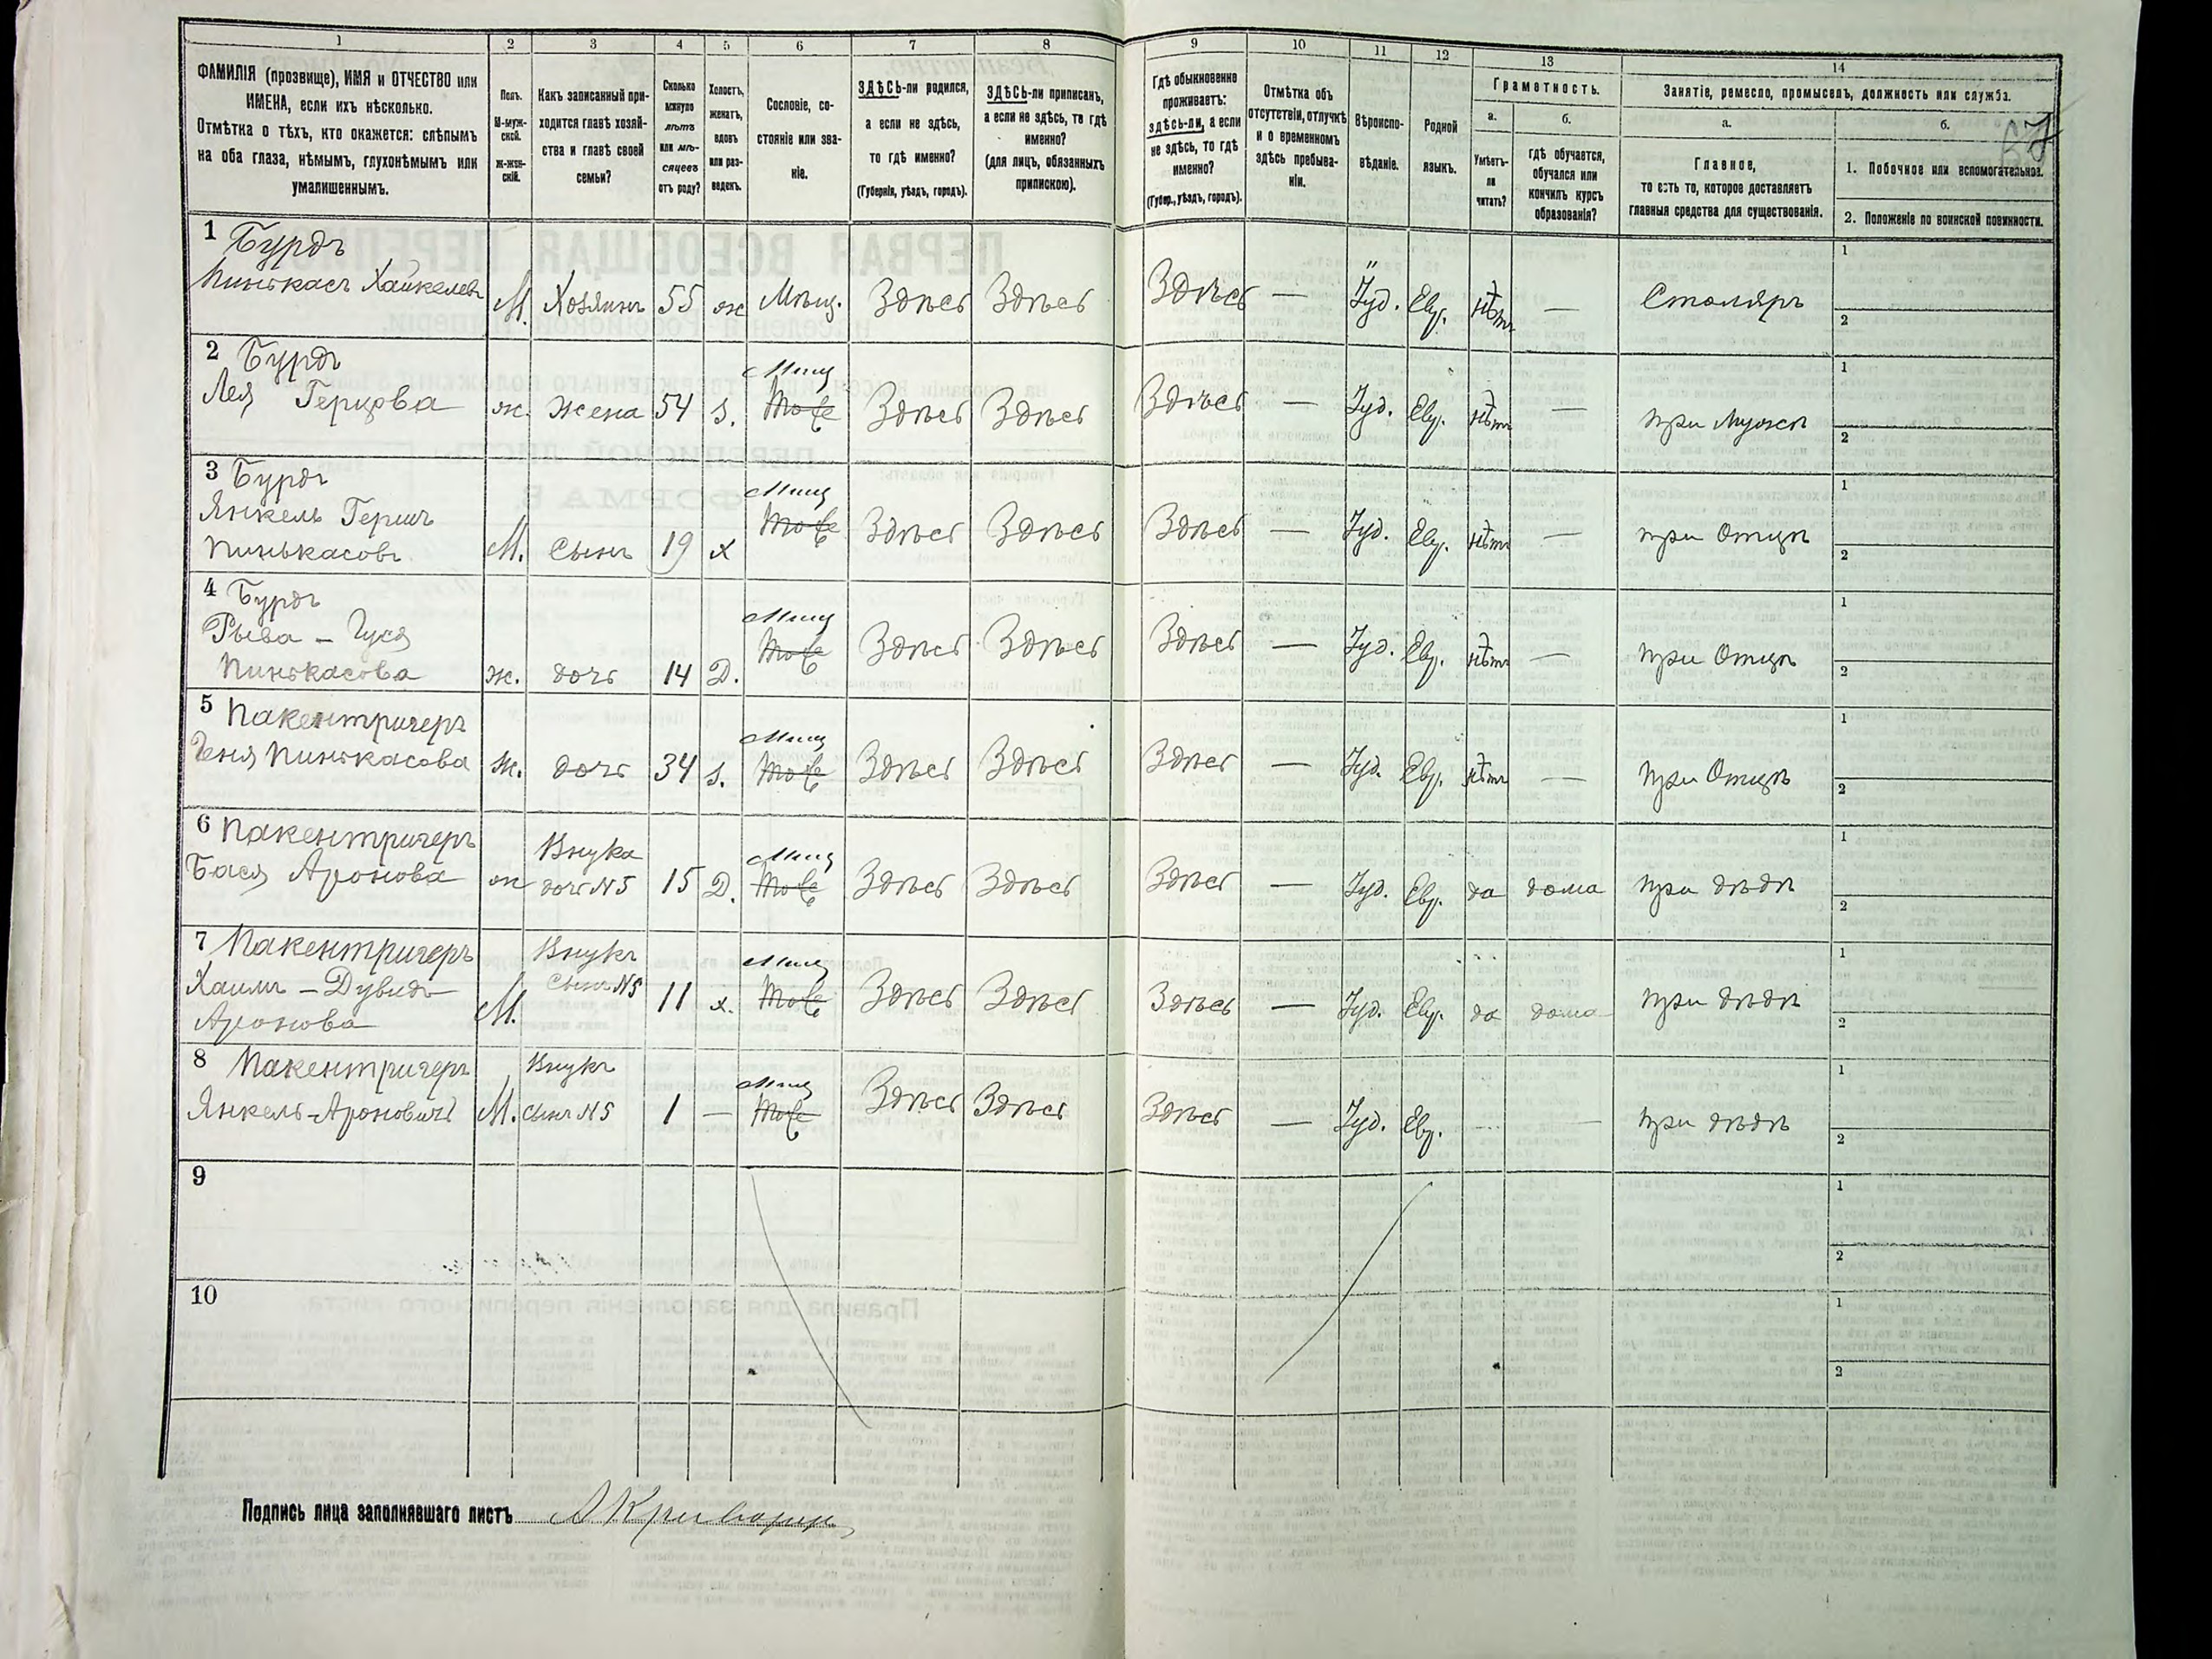 1 2 3 4 5 6 7 8 9 10 11 12 13 14
ФАМИЛІЯ (прозвище), ИМЯ и ОТЧЕСТВО или
ИМЕНА, если ихъ нѣсколько.
Отмѣтка о тѣхъ, кто окажется: слѣпымъ
на оба глаза, нѣмымъ, глухонѣмымъ или
умалишеннымъ.
Полъ.
М-муж-
ской.
Ж-жен-
скій.
Какъ записанный при-
ходится главѣ хозяй-
ства и главѣ своей
семьи?
Сколько
минуло
лѣтъ
или мѣ-
сяцевъ
отъ роду?
Холостъ,
женатъ,
вдовъ
или раз-
веденъ.
Сословіе, со-
стояніе или зва-
ніе.
ЗДѢСЬ-ли родился,
а если не здѣсь,
то гдѣ именно?
(Губернія, уѣздъ, городъ).
ЗДѢСЬ-ли приписанъ,
а если не здѣсь, то гдѣ
именно?
(для лицъ, обязанныхъ
припискою).
Гдѣ обыкновенно
проживаетъ:
здѣсь-ли, а если
не здѣсь, то гдѣ
именно?
(Губер., уѣздъ, городъ).
Отмѣтка объ
отсутствіи, отлучкѣ
и о временномъ
здѣсь пребыва-
ніи.
Вѣроиспо-
вѣданіе.
Родной
языкъ.
Грамотность.
а.
Умѣетъ-
ли
читать?
б.
Гдѣ обучается,
обучался или
кончилъ курсъ
образованія?
Занятіе, ремесло, промыселъ, должность или служба.
а.
Главное,
то есть то, которое доставляетъ
главныя средства для существованія.
б.
1. Побочное или вспомогательное.
2. Положеніе по воинской повинности.
1 Бурдъ
Пинькасъ Хайкелевъ М. Хозяинъ 55 ж Мѣщ. Здѣсь Здѣсь Здѣсь — Іуд. Евр. нѣтъ — Столяръ
1
2
2 Бурдъ
Мѣщ
Лея Герцова ж. жена 54 з. тоже Здѣсь Здѣсь Здѣсь — Іуд. Евр. нѣтъ — при Мужѣ
1
2
3 Бурдъ
Мѣщ
Янкель Гершъ
Пинькасовъ М. Сынъ 19 х тоже Здѣсь Здѣсь Здѣсь — Іуд. Евр. нѣтъ — при Отцѣ
1
2
4 Бурдъ
Мѣщ
Рыва - Гуся
Пинькасова ж. дочь 14 Д. тоже Здѣсь Здѣсь Здѣсь — Іуд. Евр. нѣтъ — при Отцѣ
1
2
5 Пакентригеръ
Мѣщ
Геня Пинькасова ж. дочь 34 з. тоже Здѣсь Здѣсь Здѣсь — Іуд. Евр. нѣтъ — при Отцѣ
1
2
6 Пакентригеръ
Внука Мѣщ
Бася Аронова ж дочь №5 15 Д. тоже Здѣсь Здѣсь Здѣсь — Іуд. Евр. да дома при дѣдѣ
1
2
7 Пакентригеръ
Внукъ Мѣщ
Хаимъ - Дувидъ
Аронова М. Сынъ №5 11 х. тоже Здѣсь Здѣсь Здѣсь — Іуд. Евр. да дома при дѣдѣ
1
2
8 Пакентригеръ
Внукъ Мѣщ
Янкель-Ароновичъ М. сынъ №5 1 — тоже Здѣсь Здѣсь Здѣсь — Іуд. Евр. — — при дѣдѣ
1
2
9
1
2
10
1
2
Подпись лица заполнявшаго листъ